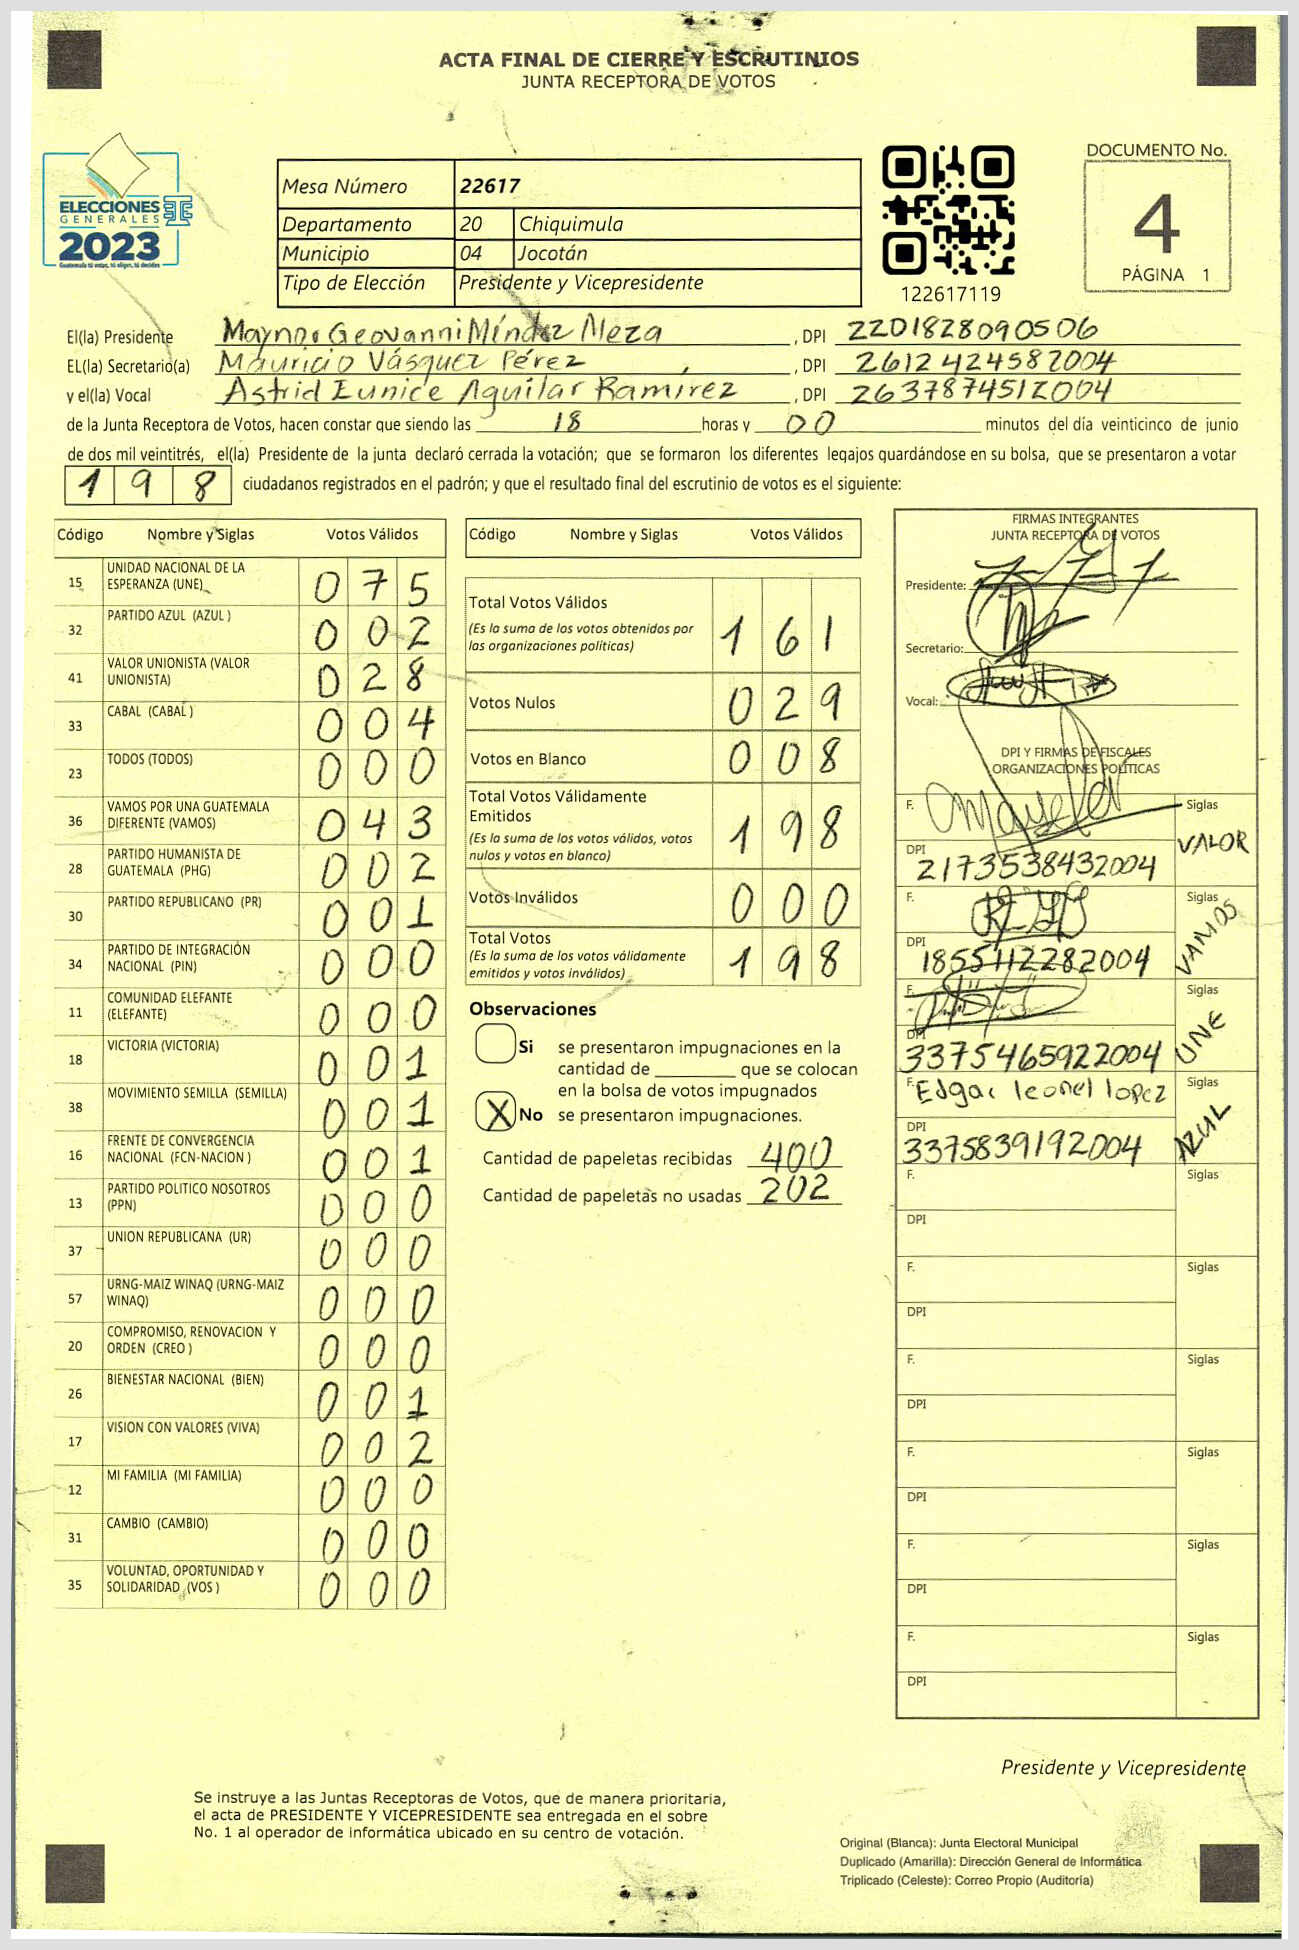 ACTA FINAL DE CIERRE Y ESCRUTINIOS
JUNTA RECEPTORA DE VOTOS
ELECCIONES
GENERALES
2023
Guatemala tú votas, tú eliges, tú decides
Mesa Número 22617
Departamento 20 Chiquimula
Municipio 04 Jocotán
Tipo de Elección Presidente y Vicepresidente
122617119
DOCUMENTO No.
4
PÁGINA 1
El(la) Presidente Geovanni Méndez Meza, DPI 2201828090506
EL(la) Secretario(a) Mauricio Vásquez Pérez, DPI 2612424582004
y el(la) Vocal Astrid Eunice Aguilar Ramirez, DPI 2637874512004
de la Junta Receptora de Votos, hacen constar que siendo las 18 horas y 00 minutos del día veinticinco de junio
de dos mil veintitrés, el(la) Presidente de la junta declaró cerrada la votación; que se formaron los diferentes legajos guardándose en su bolsa, que se presentaron a votar
198 ciudadanos registrados en el padrón; y que el resultado final del escrutinio de votos es el siguiente:
Código Nombre y Siglas Votos Válidos
15 UNIDAD NACIONAL DE LA ESPERANZA (UNE) 075
32 PARTIDO AZUL (AZUL ) 002
41 VALOR UNIONISTA (VALOR UNIONISTA) 028
33 CABAL (CABAL ) 004
23 TODOS (TODOS) 000
36 VAMOS POR UNA GUATEMALA DIFERENTE (VAMOS) 043
28 PARTIDO HUMANISTA DE GUATEMALA (PHG) 002
30 PARTIDO REPUBLICANO (PR) 001
34 PARTIDO DE INTEGRACIÓN NACIONAL (PIN) 000
11 COMUNIDAD ELEFANTE (ELEFANTE) 000
18 VICTORIA (VICTORIA) 001
38 MOVIMIENTO SEMILLA (SEMILLA) 001
16 FRENTE DE CONVERGENCIA NACIONAL (FCN-NACION ) 001
13 PARTIDO POLITICO NOSOTROS (PPN) 000
37 UNION REPUBLICANA (UR) 000
57 URNG-MAIZ WINAQ (URNG-MAIZ WINAQ) 000
20 COMPROMISO, RENOVACION Y ORDEN (CREO ) 000
26 BIENESTAR NACIONAL (BIEN) 001
17 VISION CON VALORES (VIVA) 002
12 MI FAMILIA (MI FAMILIA) 000
31 CAMBIO (CAMBIO) 000
35 VOLUNTAD, OPORTUNIDAD Y SOLIDARIDAD (VOS ) 000
Código Nombre y Siglas Votos Válidos
Total Votos Válidos 161
(Es la suma de los votos obtenidos por
las organizaciones políticas)
Votos Nulos 029
Votos en Blanco 008
Total Votos Válidamente
Emitidos 198
(Es la suma de los votos válidos, votos
nulos y votos en blanco)
Votos Inválidos 000
Total Votos 198
(Es la suma de los votos válidamente
emitidos y votos inválidos)
Observaciones
Si se presentaron impugnaciones en la
cantidad de ________ que se colocan
en la bolsa de votos impugnados
X No se presentaron impugnaciones.
Cantidad de papeletas recibidas 400
Cantidad de papeletas no usadas 202
FIRMAS INTEGRANTES
JUNTA RECEPTORA DE VOTOS
Presidente:
Secretario:
Vocal:
DPI Y FIRMAS DE FISCALES
ORGANIZACIONES POLÍTICAS
F. Siglas VALOR
DPI 2173538432004
F. Siglas VAMOS
DPI 1855112282004
F. Siglas UNE
DPI 3375465922004
F. Edgar leonel lopez Siglas AZUL
DPI 3375839192004
F. Siglas
DPI
F. Siglas
DPI
F. Siglas
DPI
F. Siglas
DPI
F. Siglas
DPI
F. Siglas
DPI
Presidente y Vicepresidente
Se instruye a las Juntas Receptoras de Votos, que de manera prioritaria,
el acta de PRESIDENTE Y VICEPRESIDENTE sea entregada en el sobre
No. 1 al operador de informática ubicado en su centro de votación.
Original (Blanca): Junta Electoral Municipal
Duplicado (Amarilla): Dirección General de Informática
Triplicado (Celeste): Correo Propio (Auditoría)